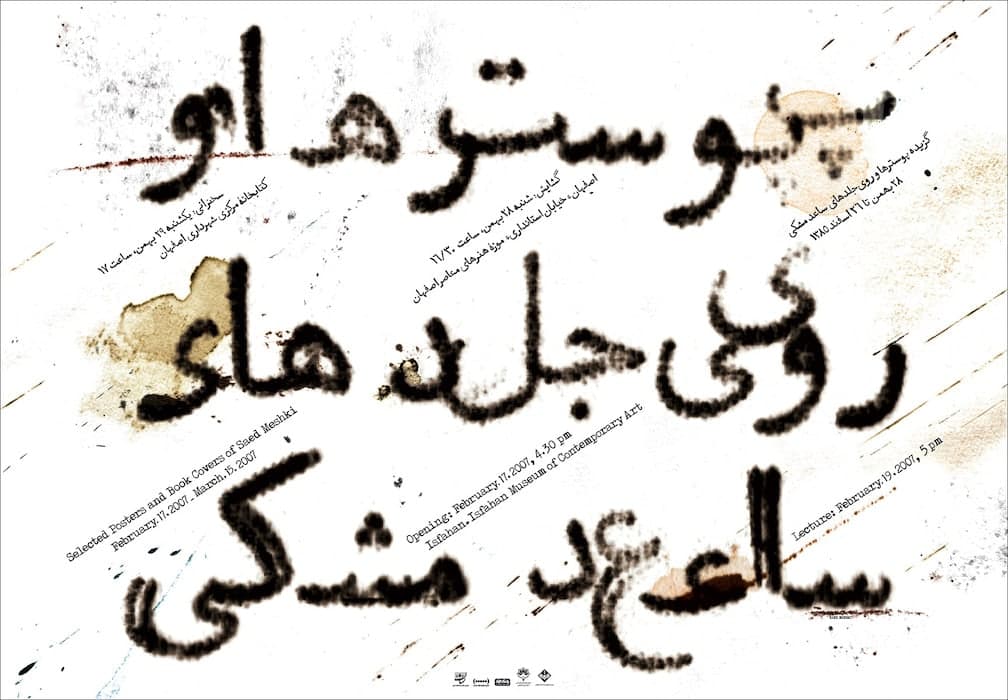 پوسترها و
گزیده پوسترها و روی جلدهای ساعد مشکی
۲۸ بهمن تا ۲۶ اسفند ۱۳۸۵
گشایش: شنبه ۲۸ بهمن، ساعت ۱۶/۳۰
اصفهان، خیابان استانداری، موزه هنرهای معاصر اصفهان
سخنرانی: یکشنبه ۲۹ بهمن، ساعت ۱۷
کتابخانه مرکزی شهرداری اصفهان
روی جلدهای
Selected Posters and Book Covers of Saed Meshki
February.17.2007 - March.15.2007
Opening: February.17.2007, 4.30 pm
Isfahan. Isfahan Museum of Contemporary Art
Lecture: February.19.2007, 5 pm
ساعد مشکی